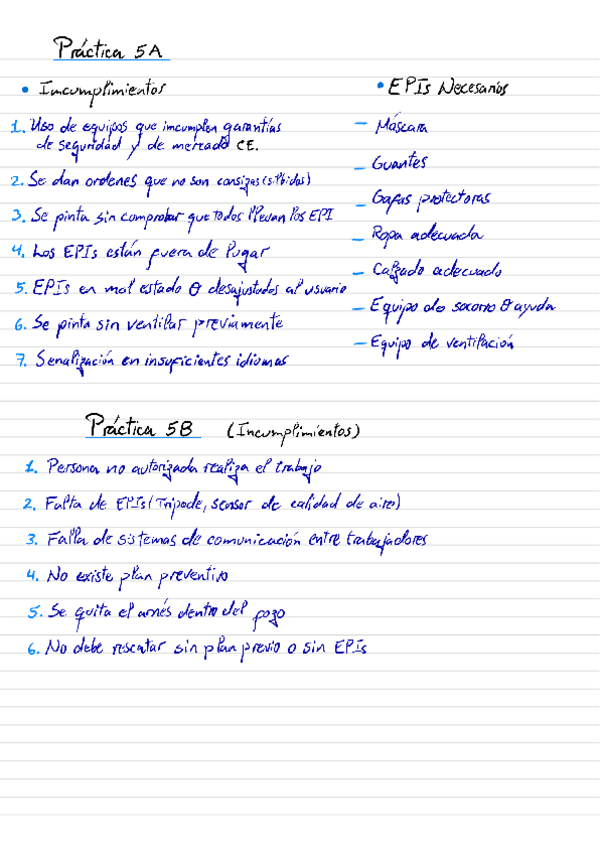 Práctica 5A
• Incumplimientos
1. Uso de equipos que incumplen garantías
de seguridad y de mercado CE.
2. Se dan ordenes que no son consizas (silbidos)
3. Se pinta sin comprobar que todos llevan los EPI
4. Los EPIs están fuera de lugar
5. EPIs en mal estado o desajustados al usuario
6. Se pinta sin ventilar previamente
7. Senalización en insuficientes idiomas
• EPIs Necesarios
- Máscara
- Guantes
- Gafas protectoras
- Ropa adecuada
- Calzado adecuado
- Equipo de socorro o ayuda
- Equipo de ventilación
Práctica 5B (Incumplimientos)
1. Persona no autorizada realiza el trabajo
2. Falta de EPIs (Tripode, sensor de calidad de aire)
3. Falla de sistemas de comunicación entre trabajadores
4. No existe plan preventivo
5. Se quita el arnés dentro del pozo
6. No debe rescatar sin plan previo o sin EPIs